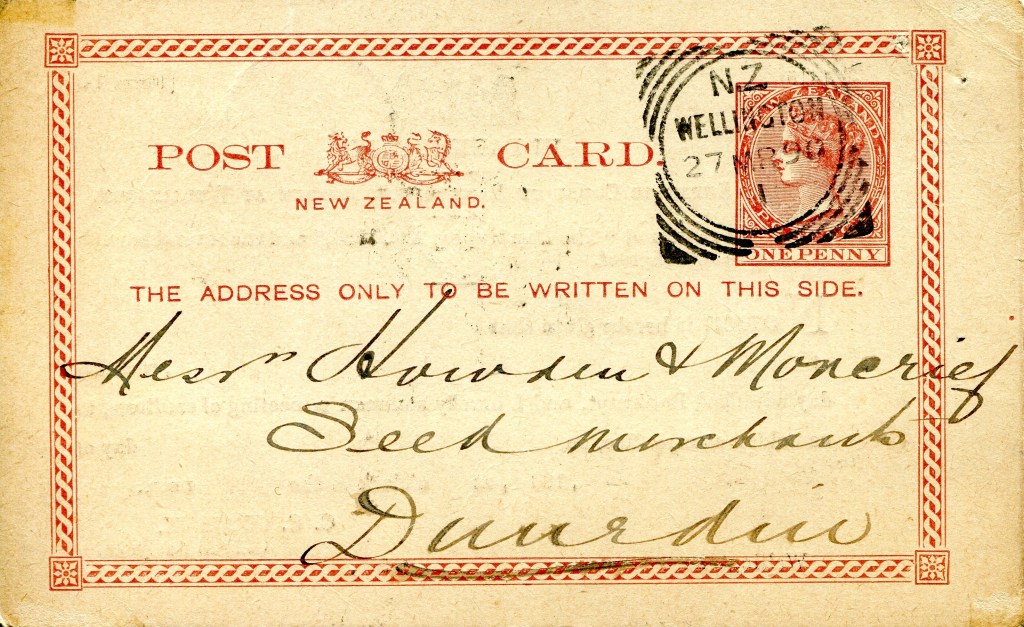 N.Z
WELLINGTON
27 MR 90
1
NEW ZEALAND
ONE PENNY
POST CARD.
NEW ZEALAND.
THE ADDRESS ONLY TO BE WRITTEN ON THIS SIDE.
Messrs Howden & Moncrief
Seed Merchants
Dunedin